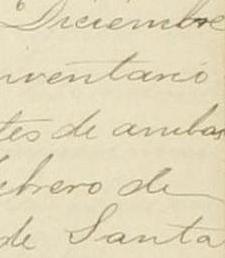 Diciembre
nventario
tes de ambas
ebrero de
de Santa